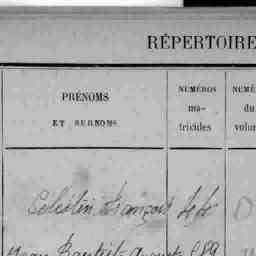 RÉPERTOIRE
PRÉNOMS
ET SURNOMS
NUMÉROS
ma-
tricules
NUMÉ
du
volum
Celestin François
Jean Baptiste Auguste 689